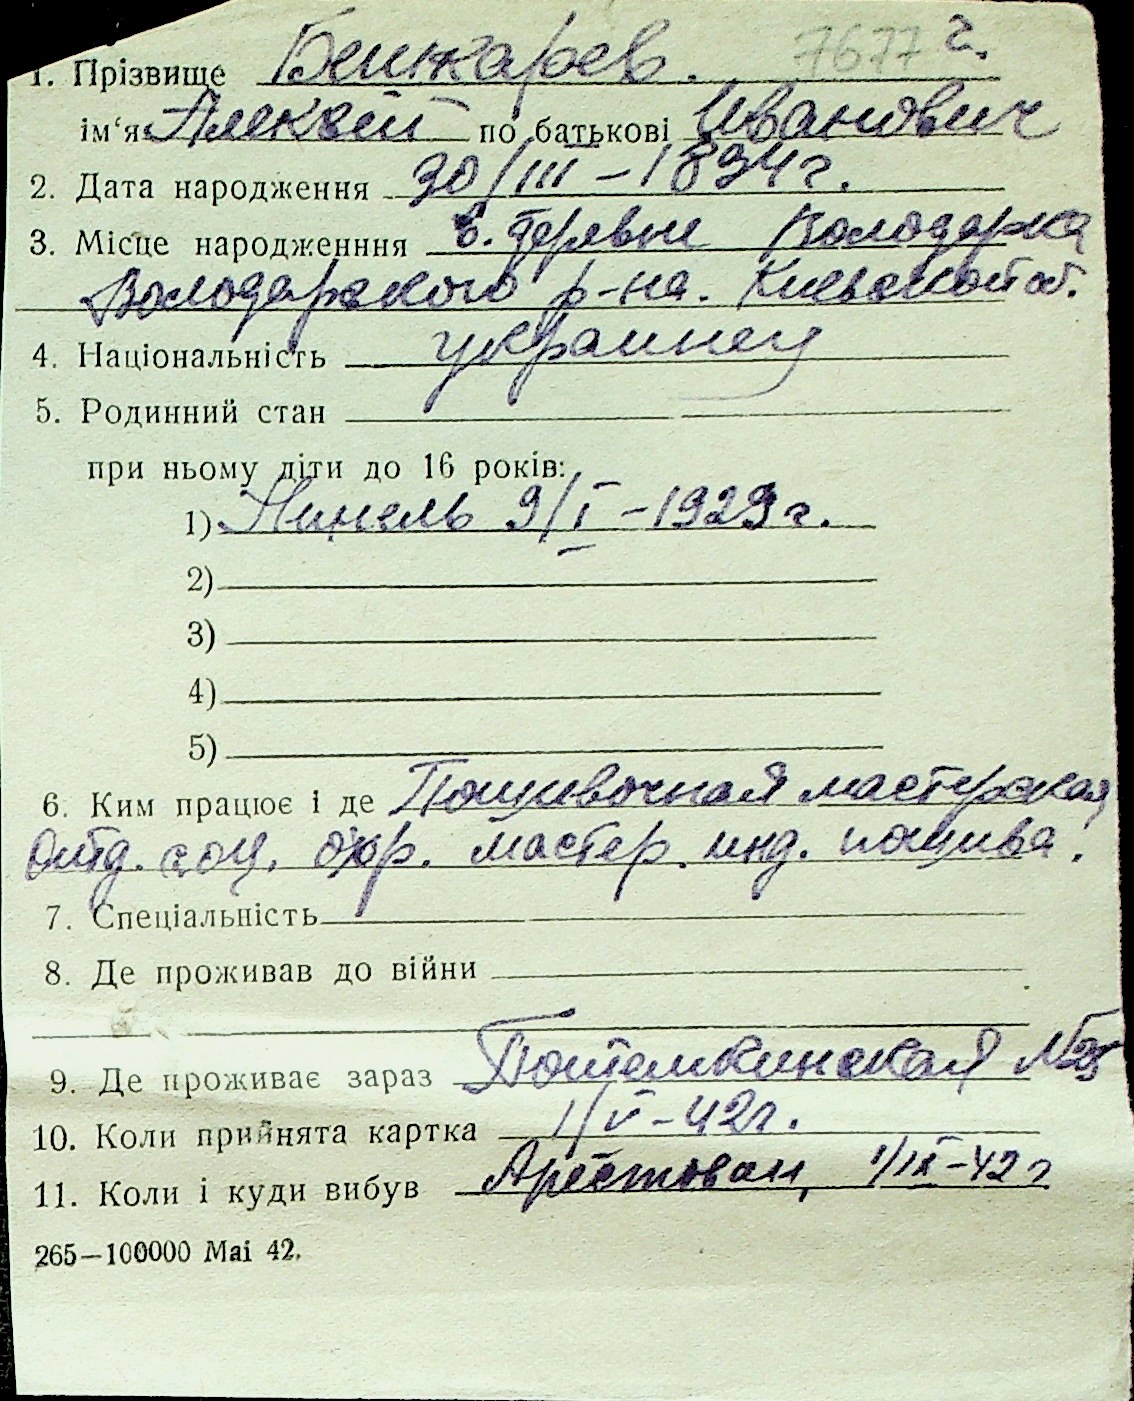 7677 г.
1. Прізвище Бенжарев.
ім'я Алексей по батькові Иванович
2. Дата народження 30/III – 1894 г.
3. Місце народженння в. деревне Володарка
Володарского р-на. Киевской об.
4. Національність украинец
5. Родинний стан
при ньому діти до 16 років:
1) Нинель 9/I – 1929 г.
2)
3)
4)
5)
6. Ким працює і де Пошивочная мастерская
Отд. соц. охр. мастер. инд. пошива.
7. Спеціальність
8. Де проживав до війни
9. Де проживає зараз Потемкинская №25
10. Коли прийнята картка 1/V – 42 г.
11. Коли і куди вибув Арестован, 1/IX – 42 г
265—100000 Mai 42.